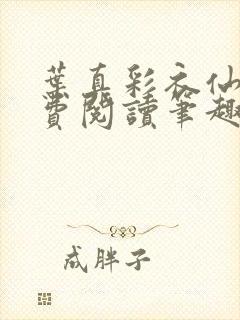 葉真彩衣仙
費閱讀筆趣
成胖子